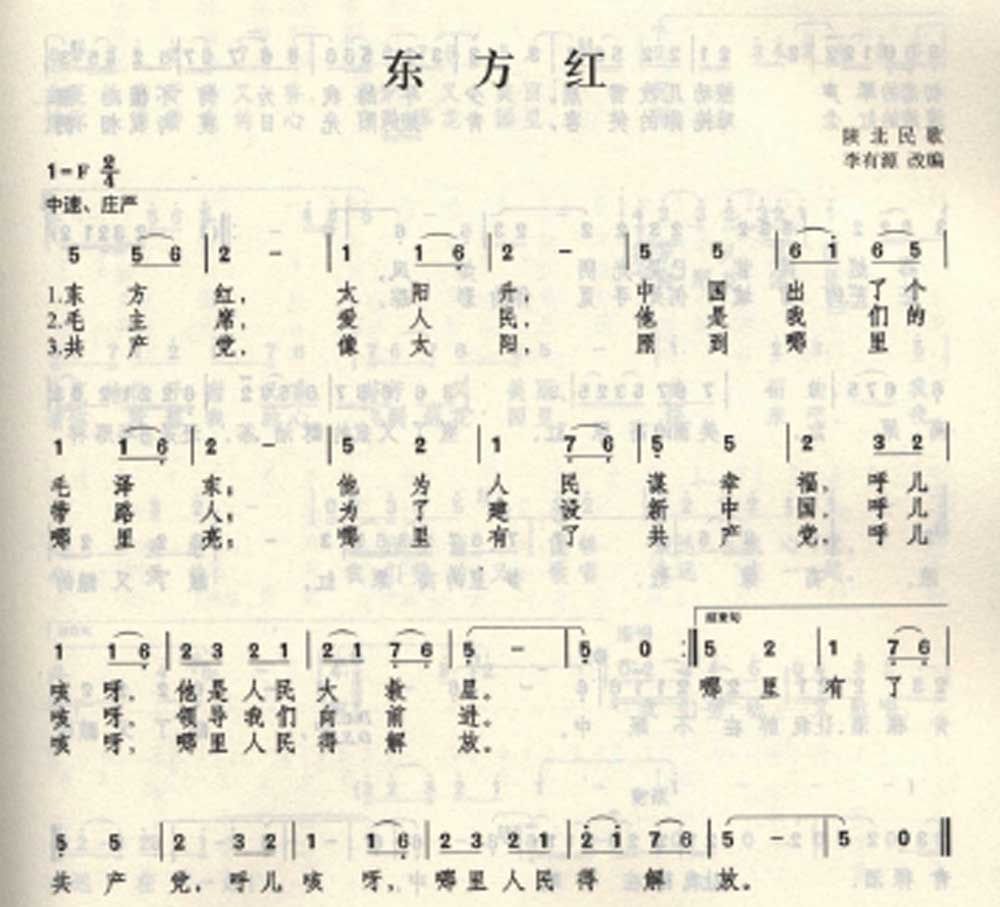 东方红
陕北民歌
李有源 改编
1=F 2/4
中速、庄严
5 5 6 | 2 - | 1 1 6 | 2 - | 5 5 | 6 1 6 5 |
1.东 方 红， 太 阳 升， 中 国 出 了 个
2.毛 主 席， 爱 人 民， 他 是 我 们 的
3.共 产 党， 像 太 阳， 照 到 哪 里
1 1 6 | 2 - | 5 2 | 1 7 6 | 5 5 | 2 3 2 |
毛 泽 东； 他 为 人 民 谋 幸 福， 呼 儿
带 路 人； 为 了 建 设 新 中 国， 呼 儿
哪 里 亮； 哪 里 有 了 共 产 党， 呼 儿
1 1 6 | 2 3 2 1 | 2 1 7 6 | 5 - | 5 0 :‖ 结束句 5 2 | 1 7 6 |
咳 呀， 他 是 人 民 大 救 星。 哪 里 有 了
咳 呀， 领 导 我 们 向 前 进。
咳 呀， 哪 里 人 民 得 解 放。
5 5 | 2 3 2 | 1 1 6 | 2 3 2 1 | 2 1 7 6 | 5 - | 5 0 ‖
共 产 党，呼 儿 咳 呀，哪 里 人 民 得 解 放。